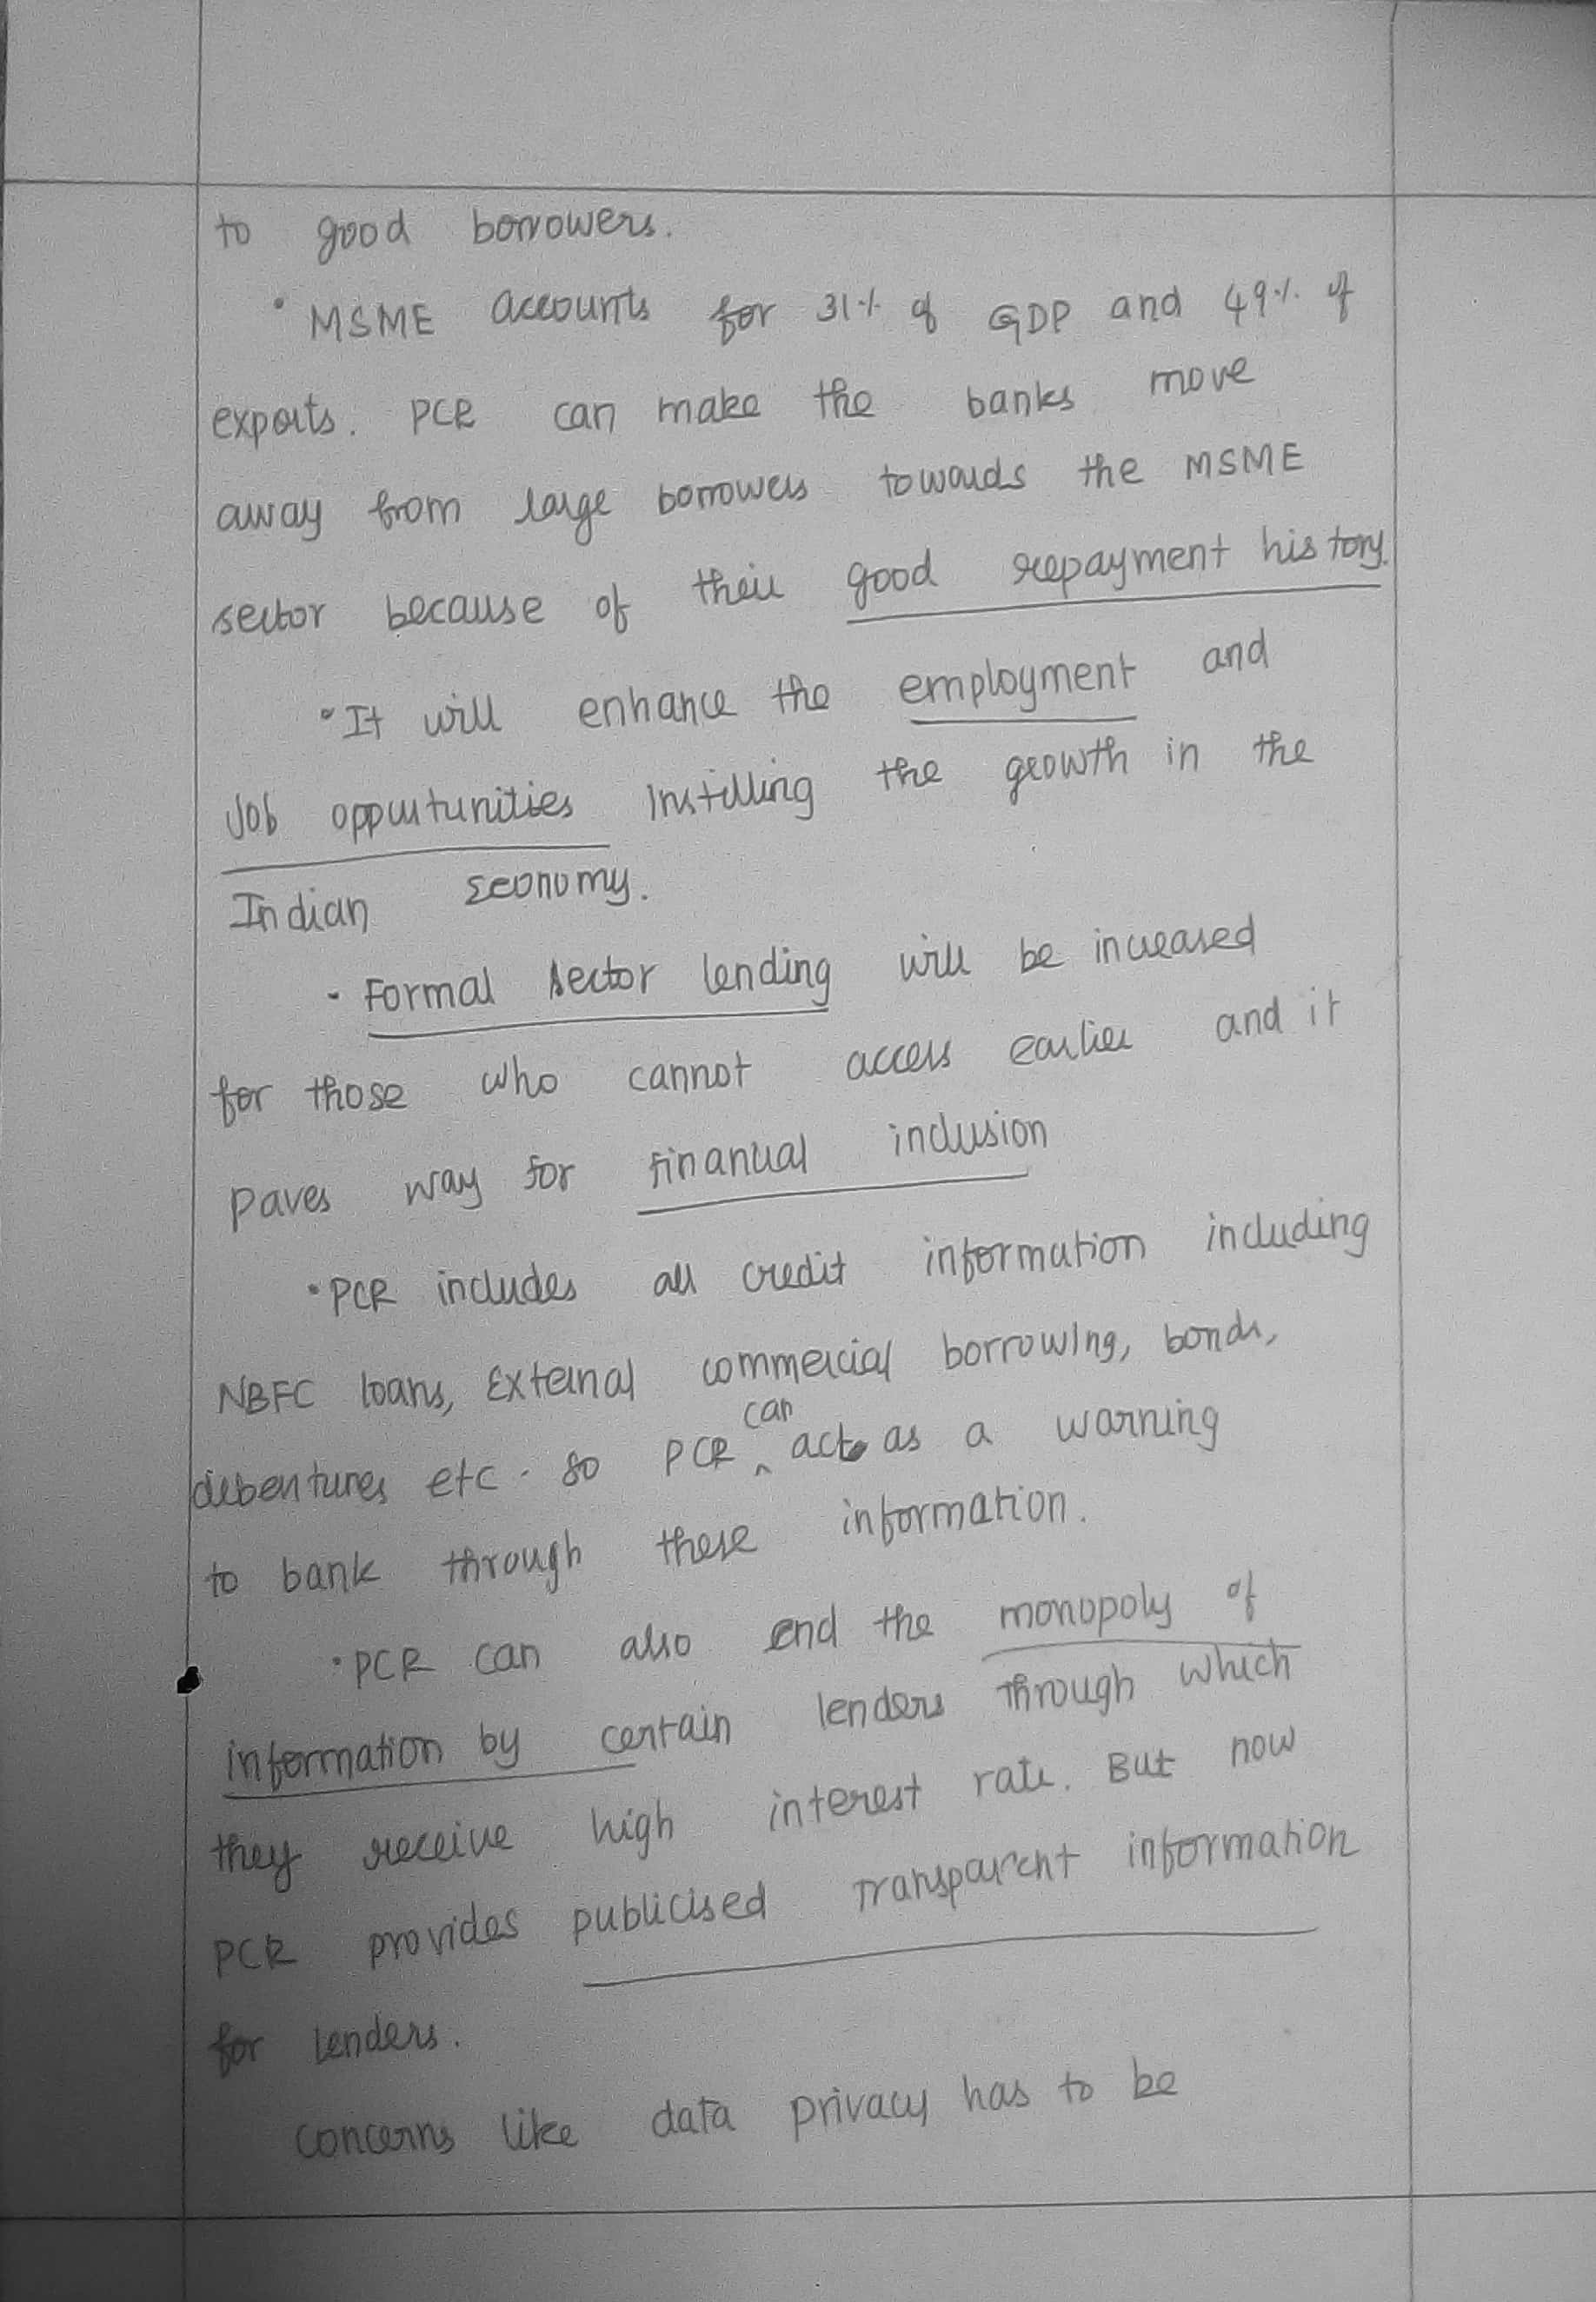 to good borrowers.
• MSME accounts for 31% of GDP and 49% of
exports. PCR can make the banks move
away from large borrowers towards the MSME
sector because of their good repayment history.
• It will enhance the employment and
Job oppurtunities instilling the growth in the
Indian Economy.
- Formal sector lending will be increased
for those who cannot access earlier and it
paves way for financial inclusion
• PCR includes all credit information including
NBFC loans, External commercial borrowing, bonds,
debentures etc. so PCR can act as a warning
to bank through these information.
• PCR can also end the monopoly of
information by certain lenders through which
they receive high interest rate. But now
PCR provides publicised transparent information
for lenders.
concerns like data privacy has to be